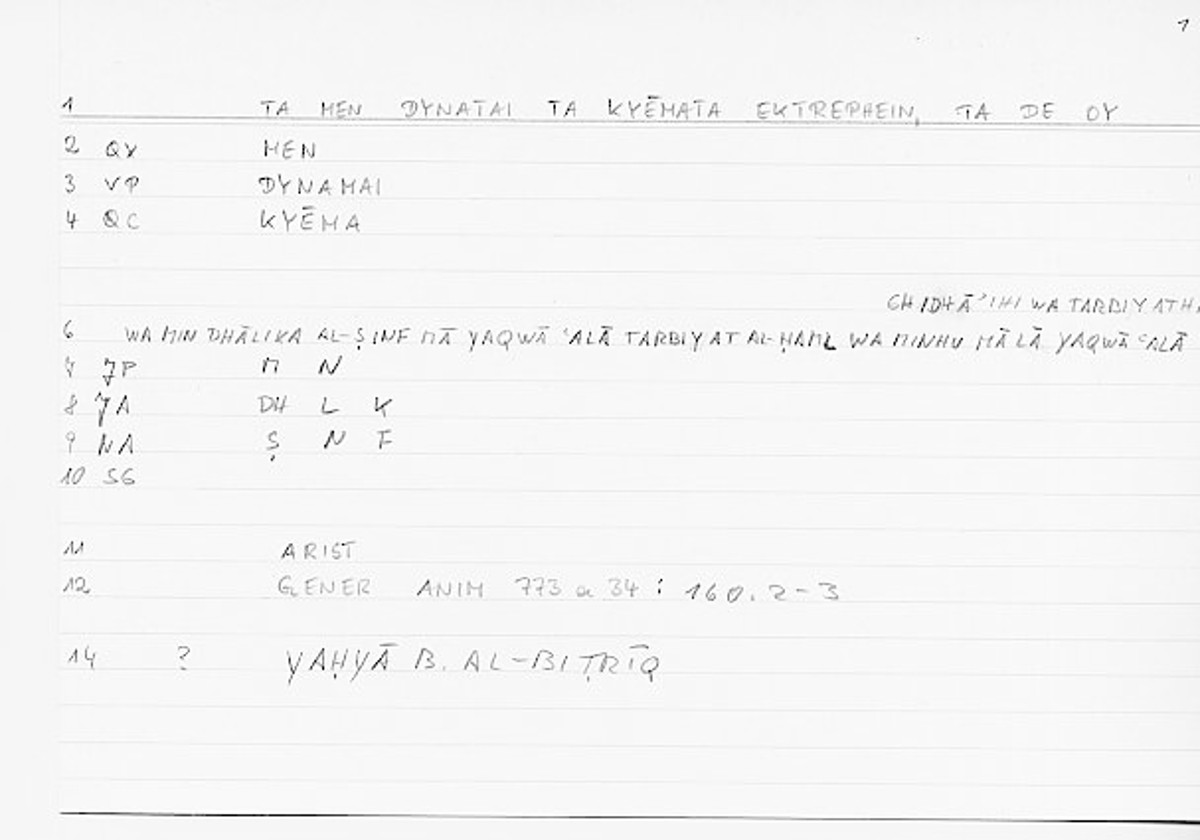 1
1 TA MEN DYNATAI TA KYĒMATA EKTREPHEIN, TA DE OY
2 QX MEN
3 VP DYNAMAI
4 QC KYĒMA
GHIDHĀʾIHI WA TARBIYATH
6 WA MIN DHĀLIKA AL-ṢINF MĀ YAQWĀ ʿALĀ TARBIYAT AL-ḤAML WA MINHU MĀ LĀ YAQWĀ ʿALĀ
7 JP M N
8 JA DH L K
9 NA Ṣ N F
10 SG
11 ARIST
12 GENER ANIM 773 a 34 : 160.2-3
14 ? YAḤYĀ B. AL-BIṬRĪQ